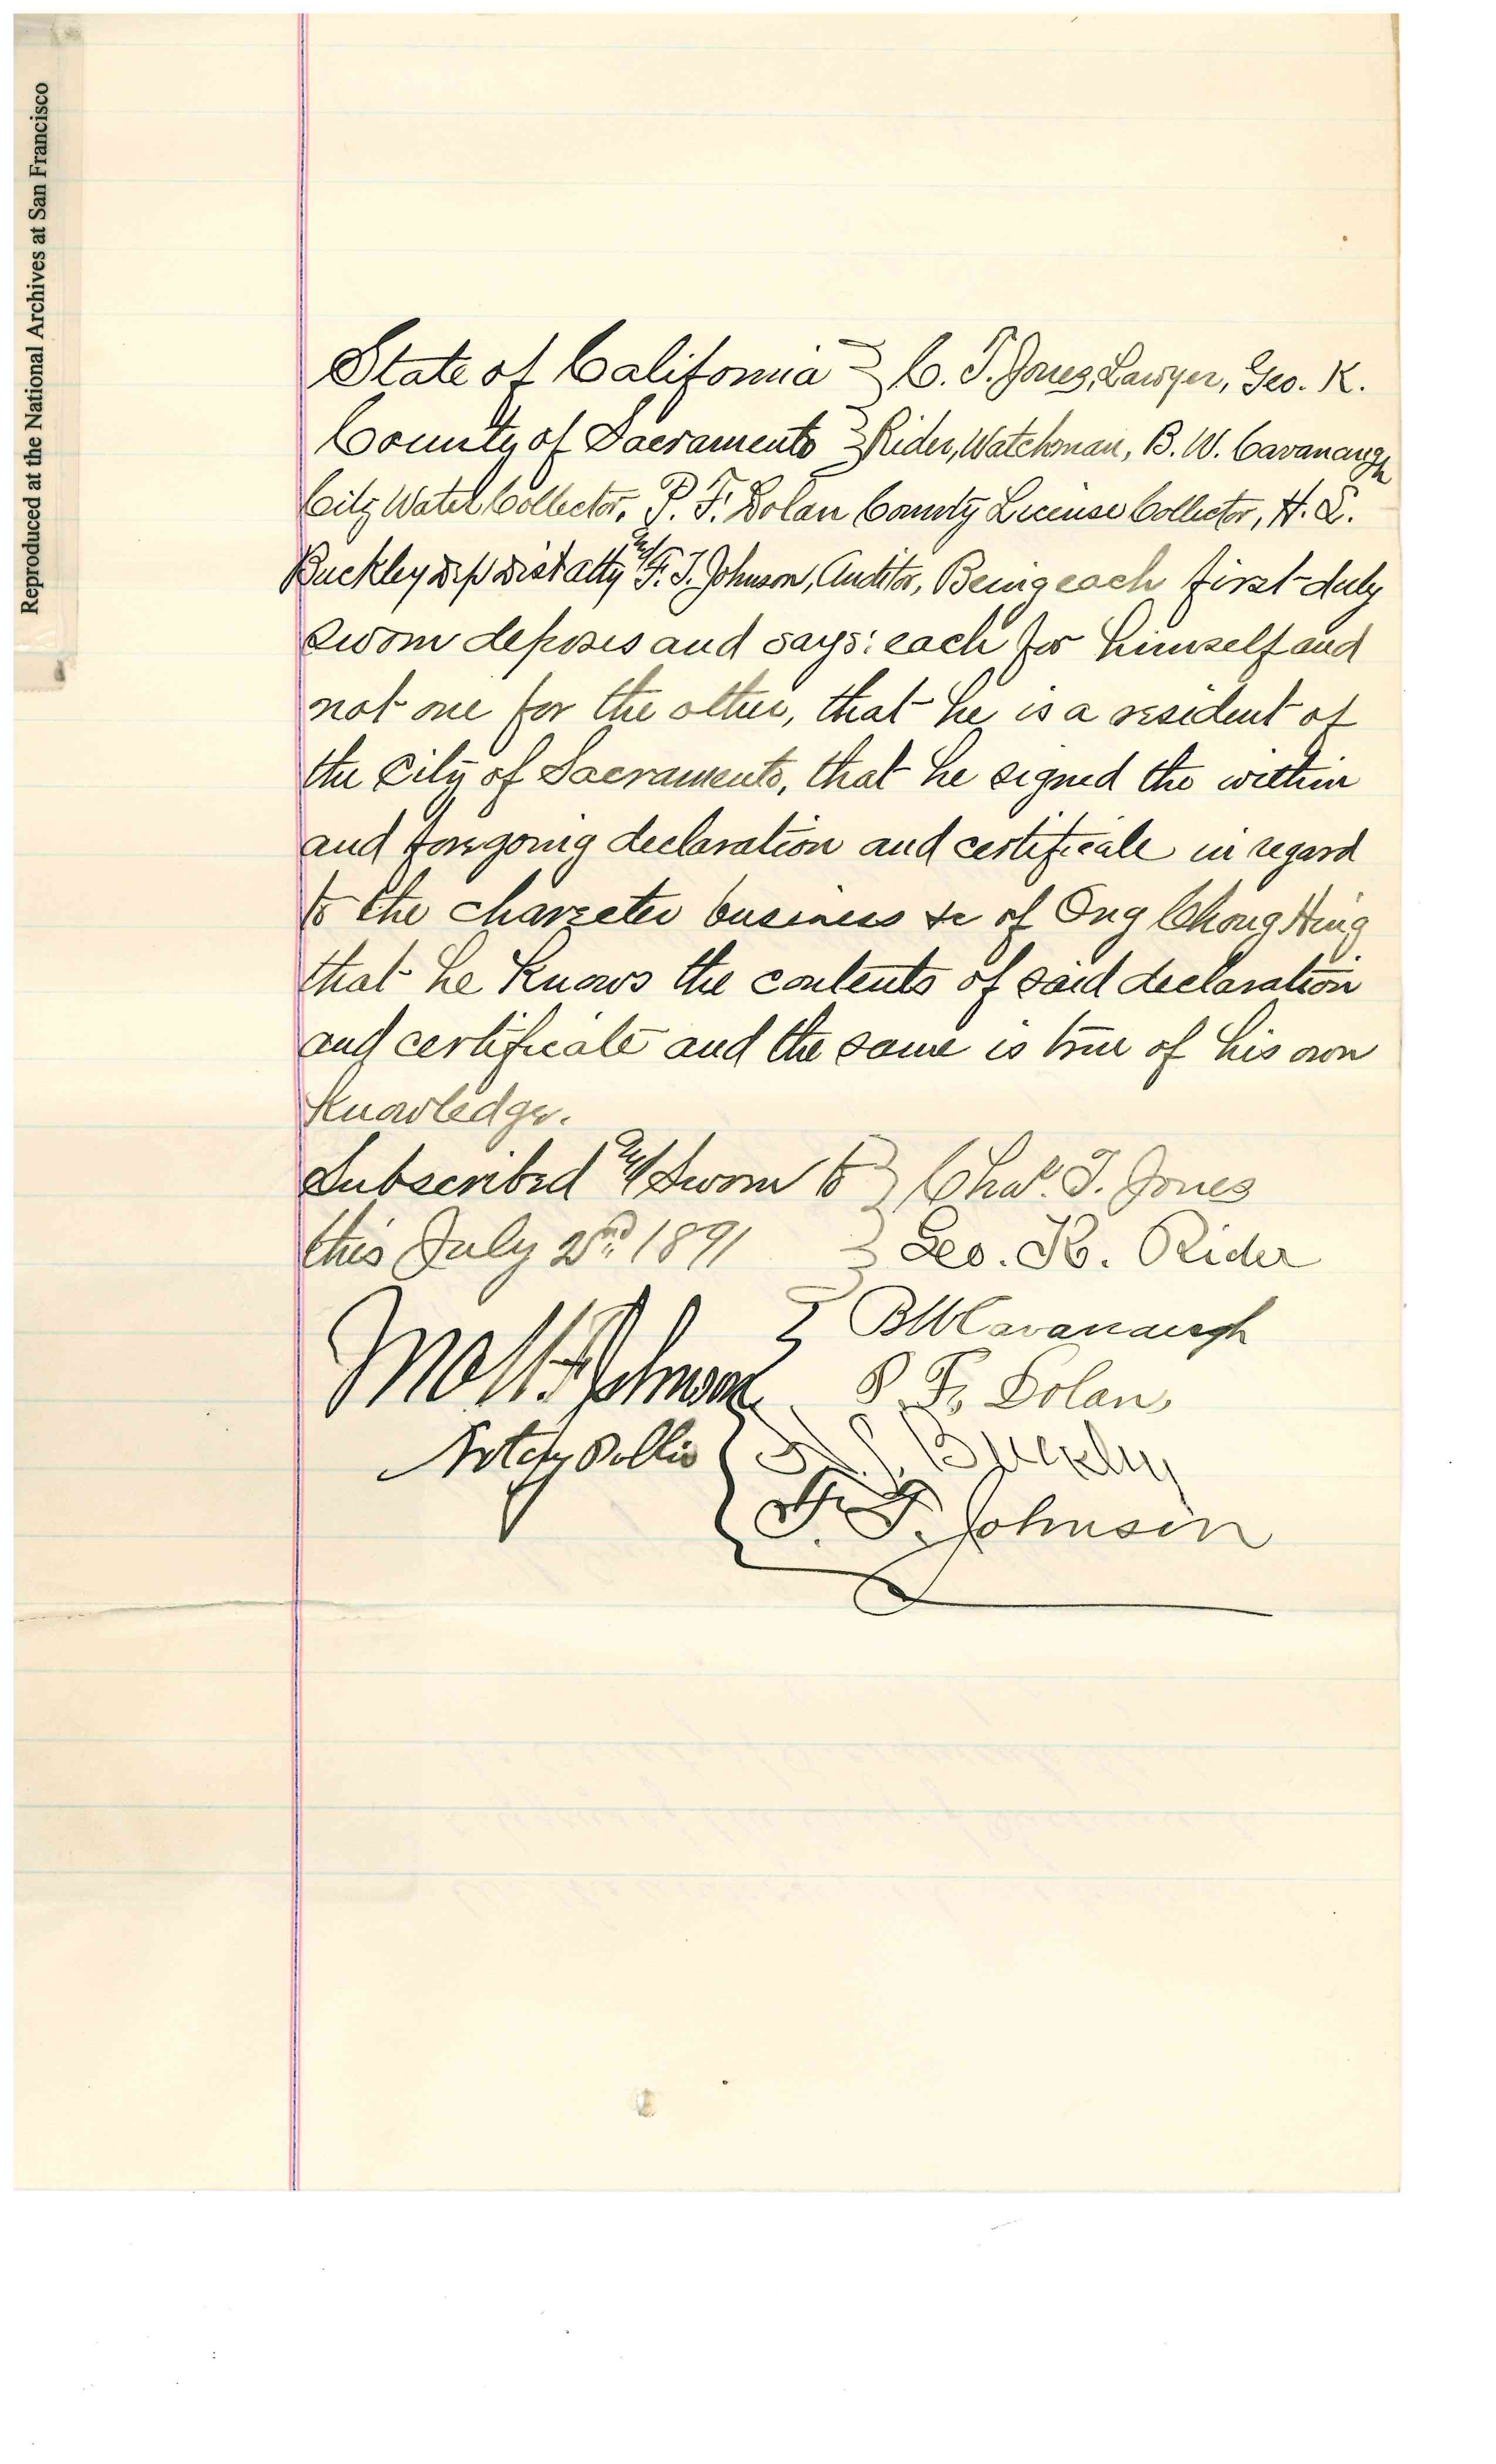 Reproduced at the National Archives at San Francisco
State of California } C. T. Jones, Lawyer, Geo. K.
County of Sacramento } Rider, Watchman, B. W. Cavanaugh
City Water Collector, P. F. Dolan County License Collector, H. L.
Buckley Dep Dist Atty and F. T. Johnson, Auditor, Being each first duly
sworn deposes and says: each for himself and
not one for the other, that he is a resident of
the City of Sacramento, that he signed the within
and foregoing declaration and certificate in regard
to the charecter business &c of Ong Chong Hing
that he knows the contents of said declaration
and certificate and the same is true of his own
Knowledge.
Subscribed and Sworn to } Chas. T. Jones
this July 2nd 1891 } Geo. K. Rider
} B W Cavanaugh
Matt. F. Johnson P. F. Dolan
Notary Public H. L. Buckley
F. T. Johnson